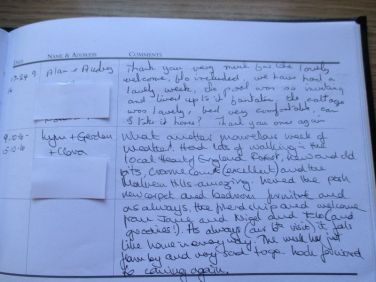 DATE NAME & ADDRESS COMMENTS
Alan & Audrey
Thank you very much for the lovely
welcome, Flo included, we have had a
lovely week, the pool was so inviting
and lived up to it, the cottage
was lovely, bed very comfortable, can
I take it home? Thank you once again
Lynn + Gordon
+ Clova
What another marvellous week of
weather! Had lots of walking in the
local Heart of England Forest, new and old
bits, Croome Court (excellent) and the
Malvern Hills - amazing. Loved the posh
new carpet and bedroom furniture and
as always, the friendship and welcome
from Jane and Nigel and Flo (and
groceries!). As always (our visit) it feels
like home in every way. The week has just
flown by and very sad to go. Look forward
to coming again.